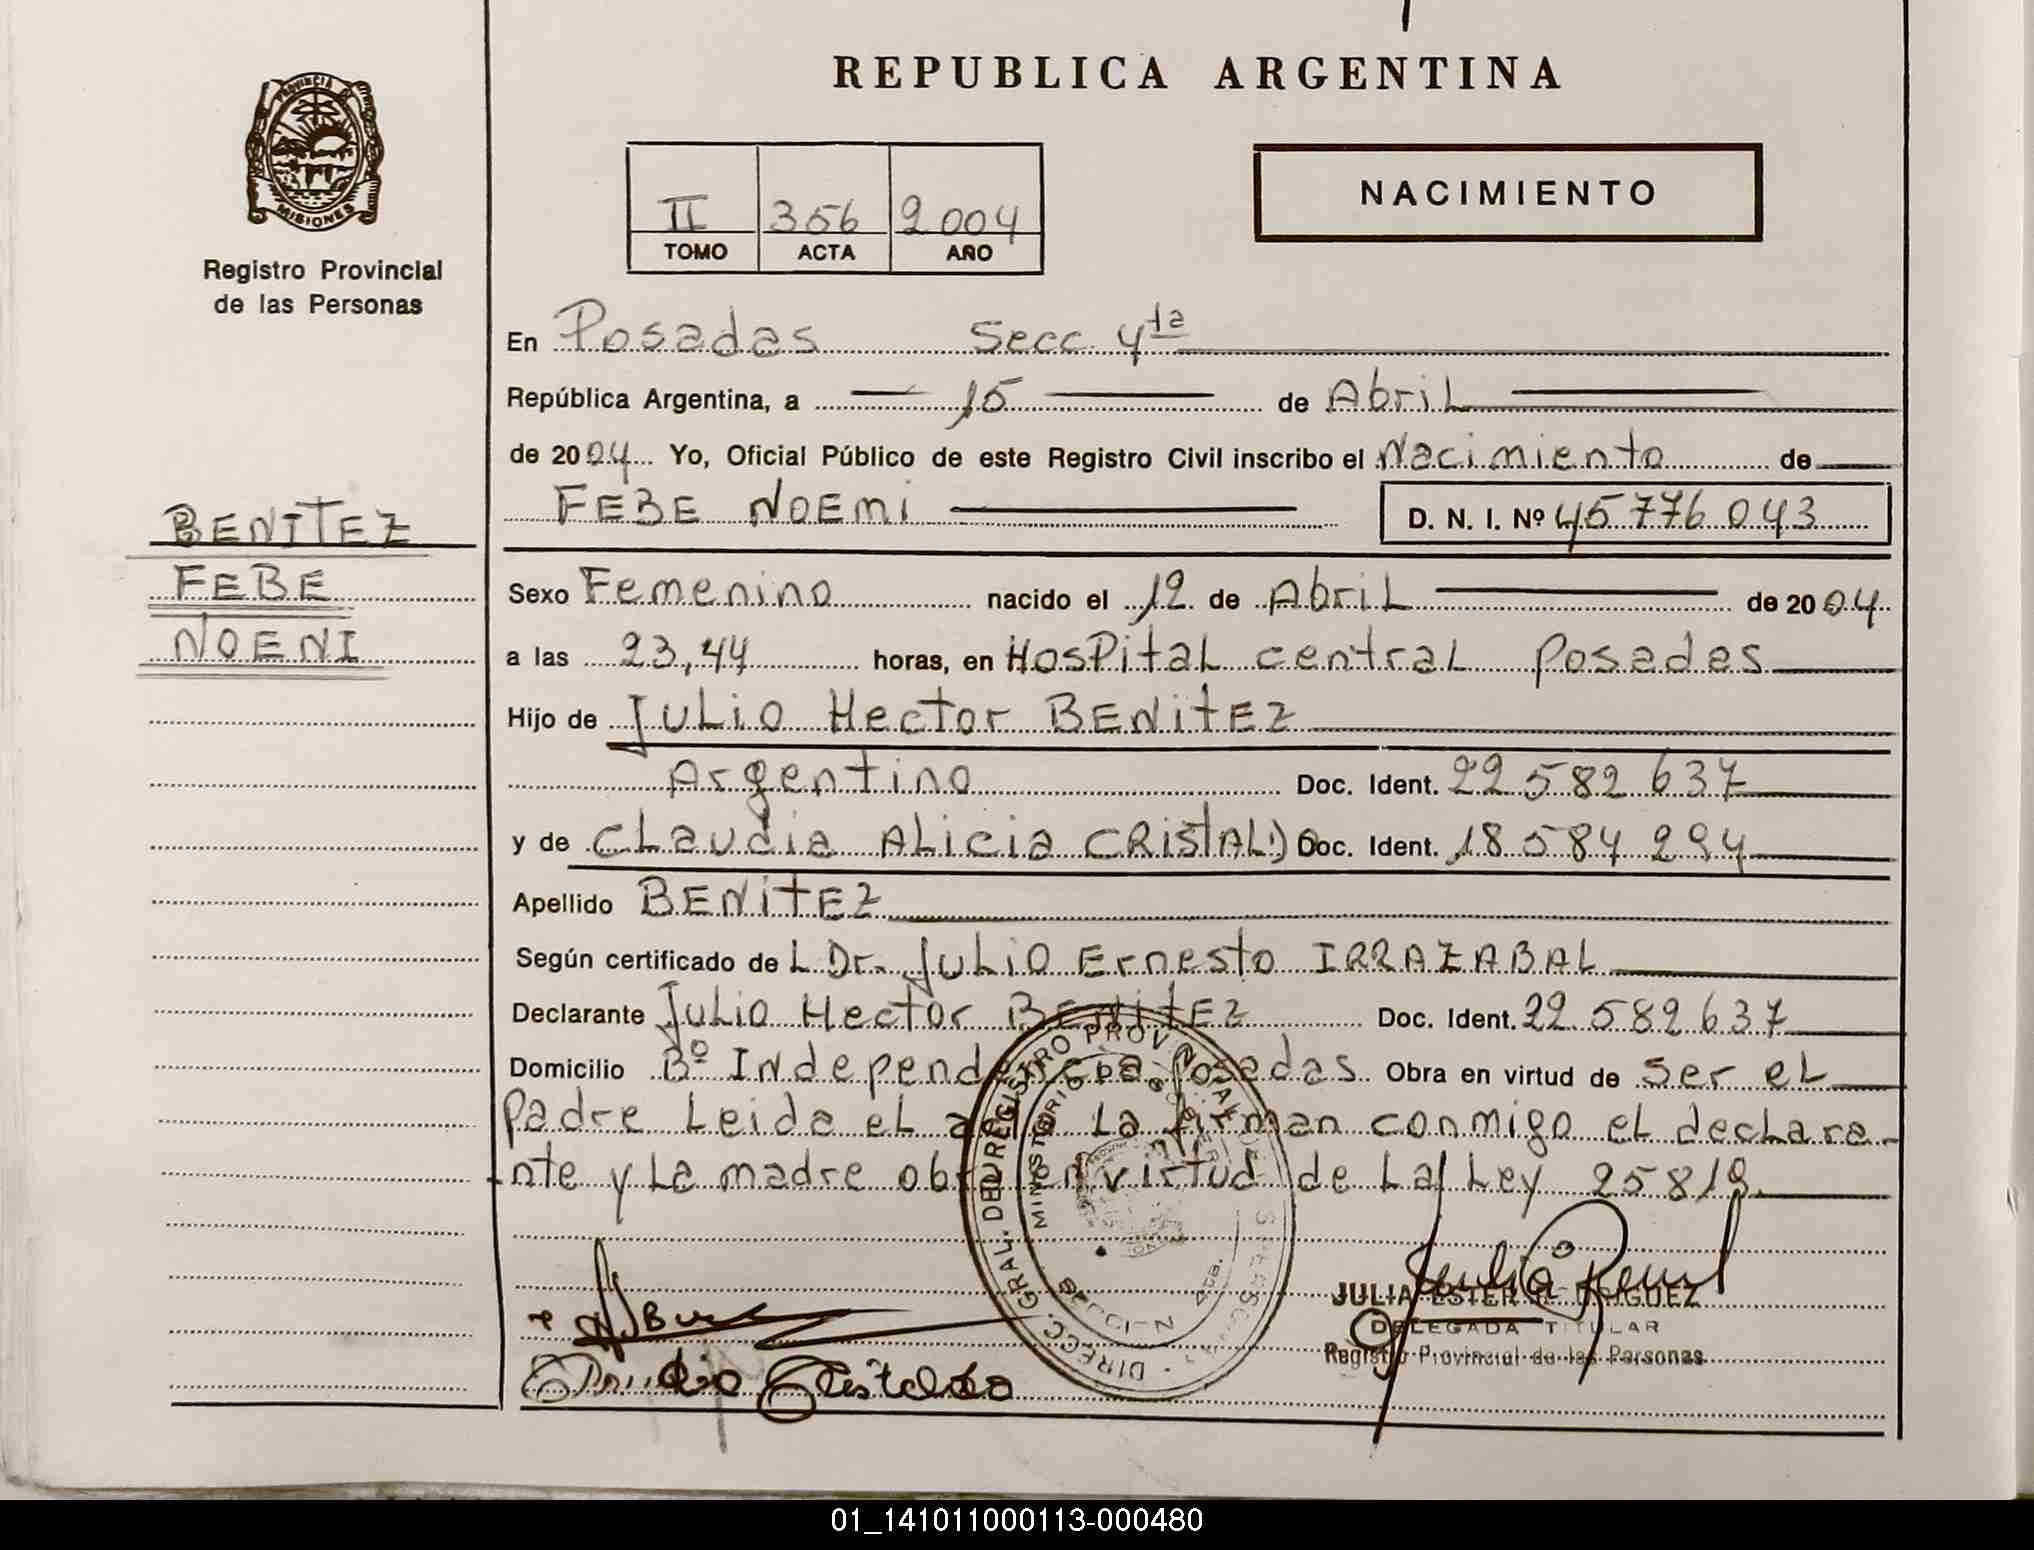 REPUBLICA ARGENTINA
PROVINCIA DE
MISIONES
Registro Provincial
de las Personas
II 356 2004
TOMO ACTA AÑO
NACIMIENTO
En Posadas Secc. 4ta
República Argentina, a 15 de Abril
de 2004 Yo, Oficial Público de este Registro Civil inscribo el Nacimiento de
FEBE NOEMI D. N. I. Nº 45 776 043
BENITEZ
FEBE
NOENI
Sexo Femenino nacido el 12 de Abril de 2004
a las 23,44 horas, en Hospital central Posadas
Hijo de Julio Hector BENITEZ
Argentino Doc. Ident. 22 582 637
y de Claudia Alicia Doc. Ident. 18 584 294
Apellido BENITEZ
Según certificado de L Dr. Julio Ernesto IRRAZABAL
Declarante Julio Hector BENITEZ Doc. Ident. 22 582 637
Domicilio Bº Independencia Posadas Obra en virtud de ser el
padre Leida el acta La firman conmigo el declara-
nte y La madre obra en virtud de La Ley 25819
DIRECC. GRAL. DEL REGISTRO PROVINCIAL DE LAS PERSONAS
MINISTERIO DE GOBIERNO
JULIA ESTER RODRIGUEZ
DELEGADA TITULAR
Registro Provincial de las Personas
01_141011000113-000480